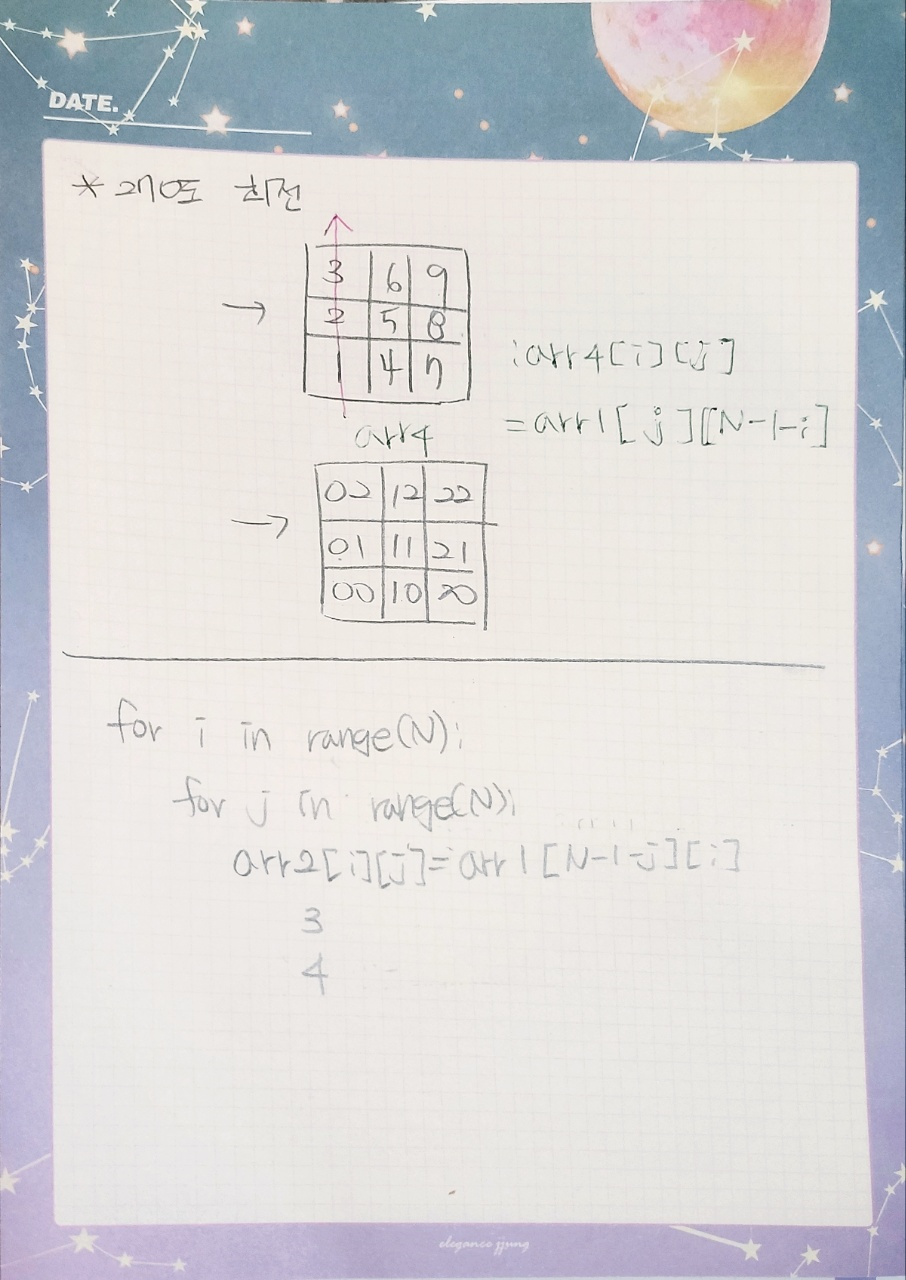 DATE.
* 270도 회전
→
3 6 9
2 5 8
1 4 7
: arr4[i][j]
= arr1[j][N-1-i]
arr4
→
02 12 22
01 11 21
00 10 20
for i in range(N):
for j in range(N):
arr2[i][j]=arr1[N-1-j][i]
3
4
elegance jjung